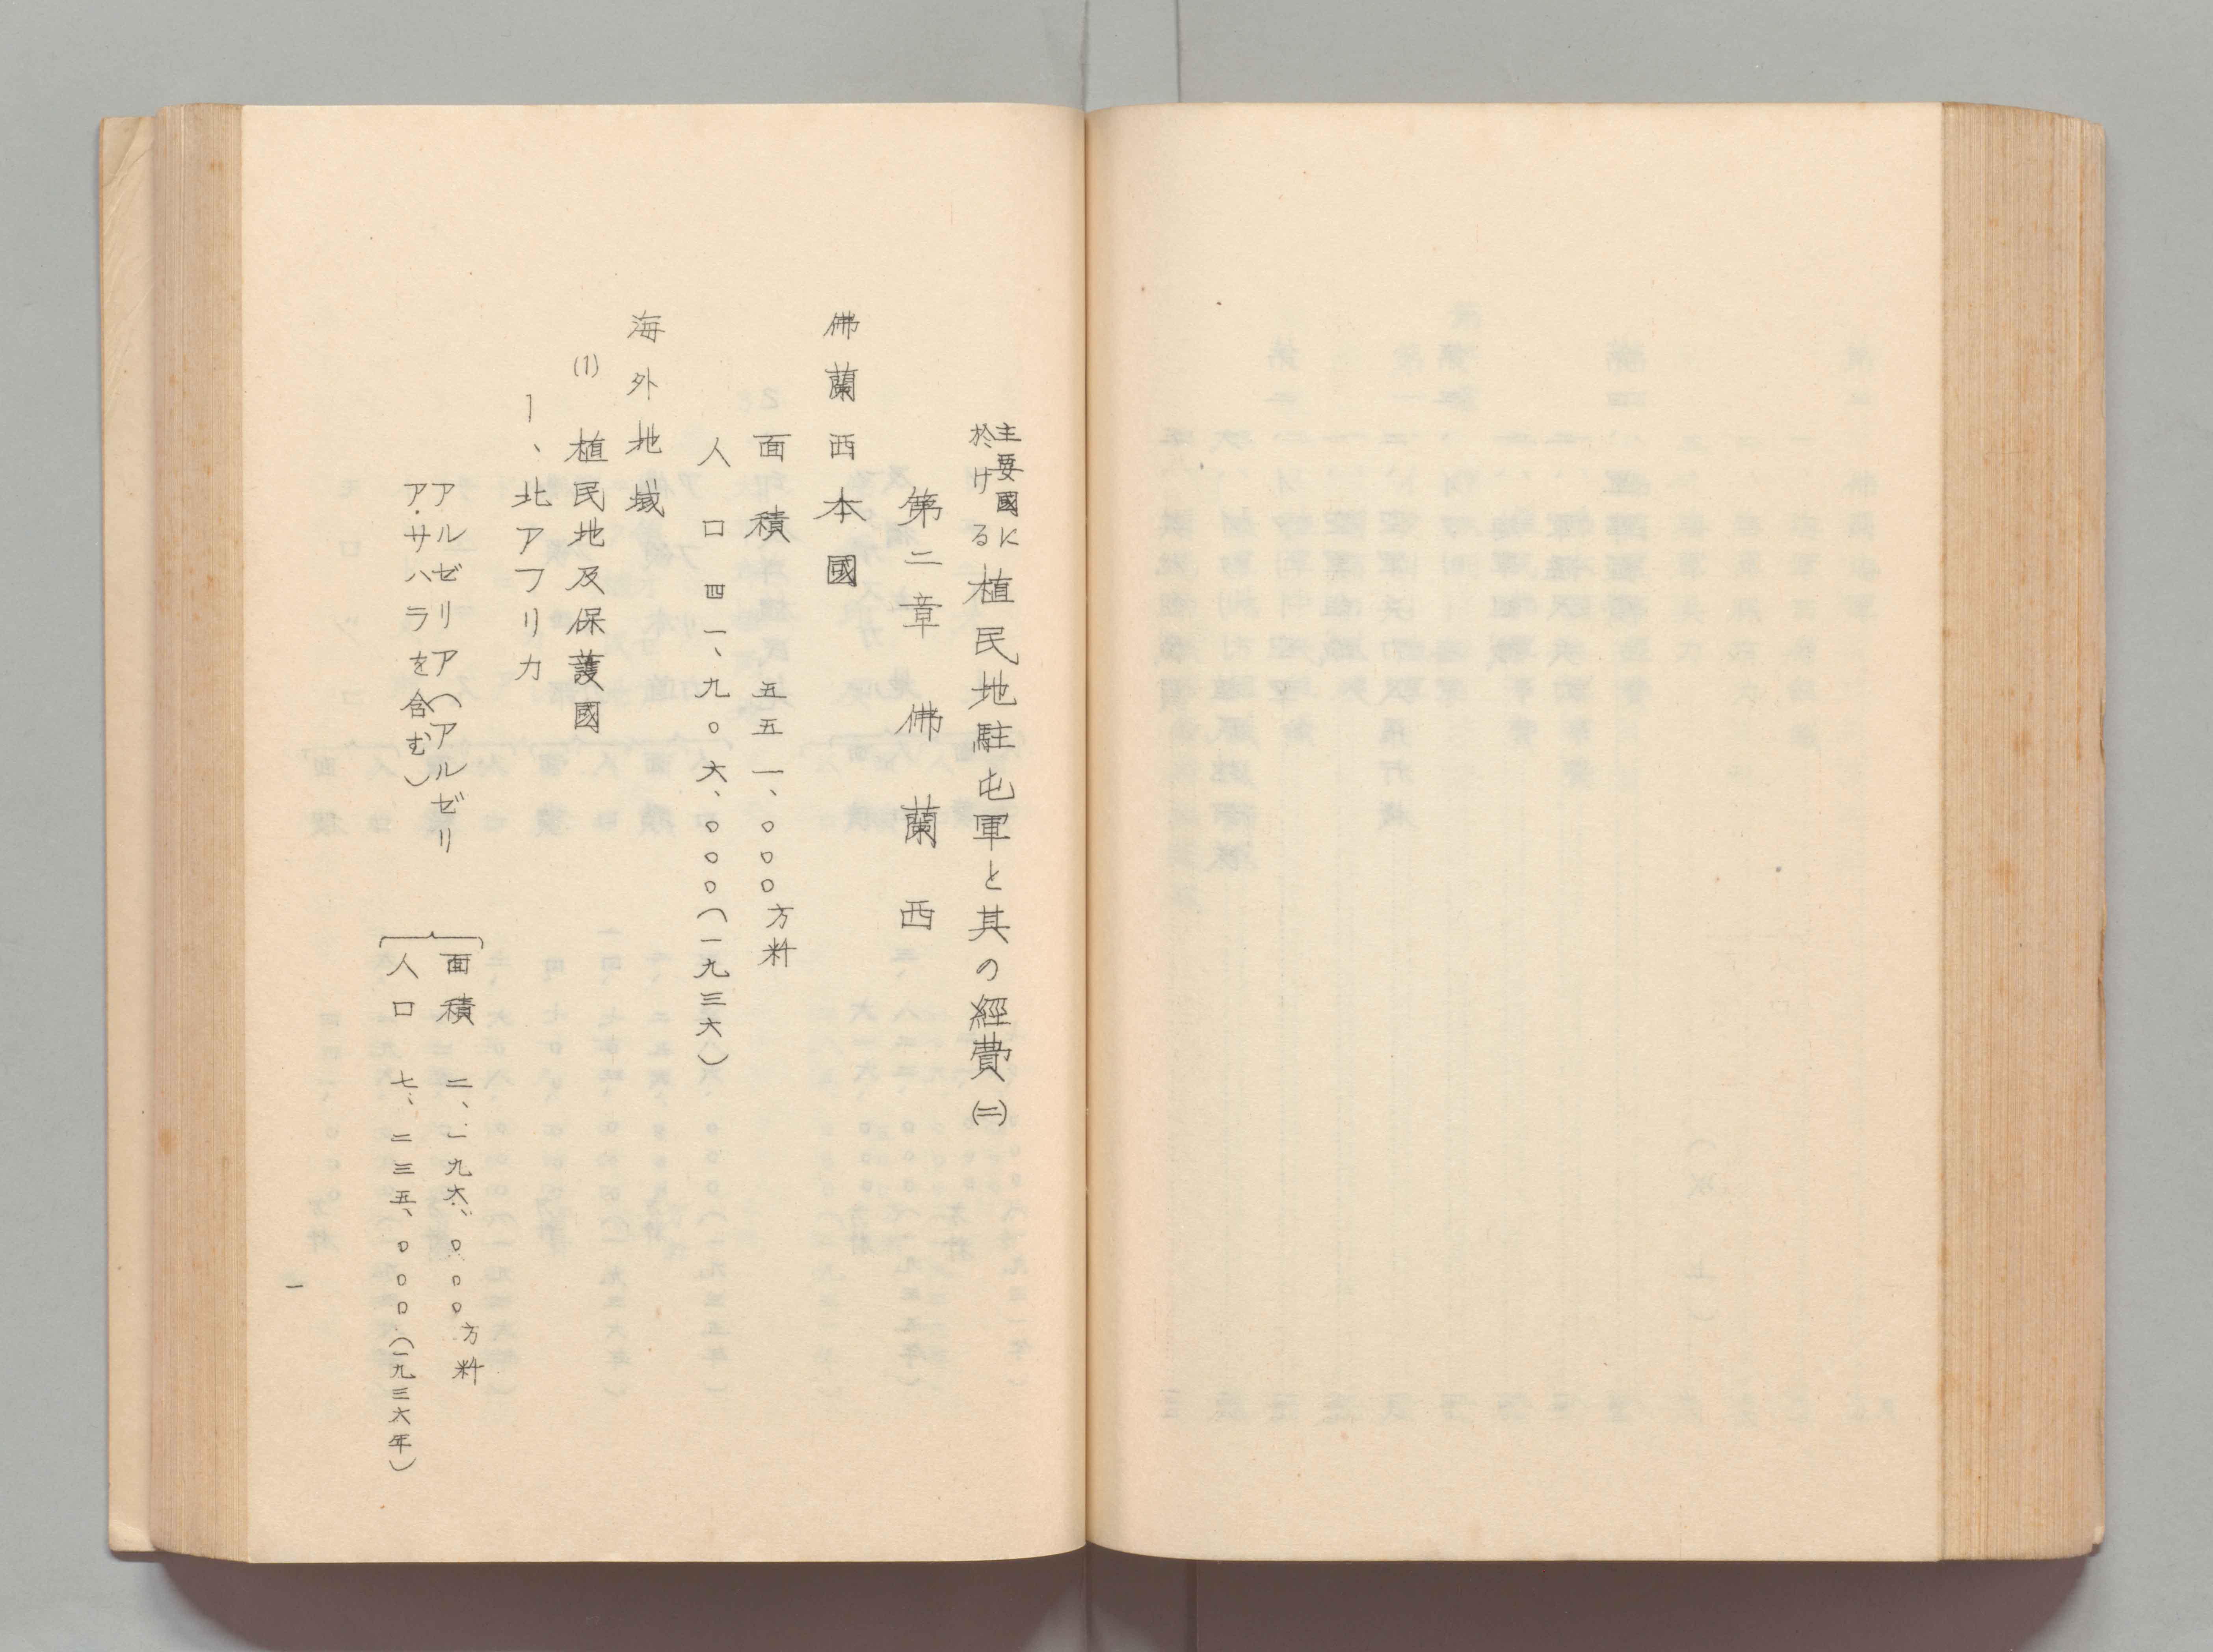 主要國に於ける植民地駐屯軍と其の經費㈡
第二章 佛蘭西
佛蘭西本國
面積 五五一、〇〇〇方粁
人口 四一、九〇六、〇〇〇(一九三六)
海外地域
(1) 植民地及保護國
1、北アフリカ
アルゼリア(アルゼリ
ア・サハラを含む)
面積 二、一九六、〇〇〇方粁
人口 七、二三五、〇〇〇(一九三六年)
一